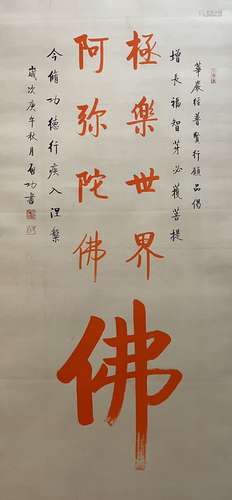 華嚴經普賢行願品偈
增長福智芽必獲菩提
極樂世界
阿彌陀佛
佛
今脩功德行疾入涅槃
歲次庚午秋月啟功書